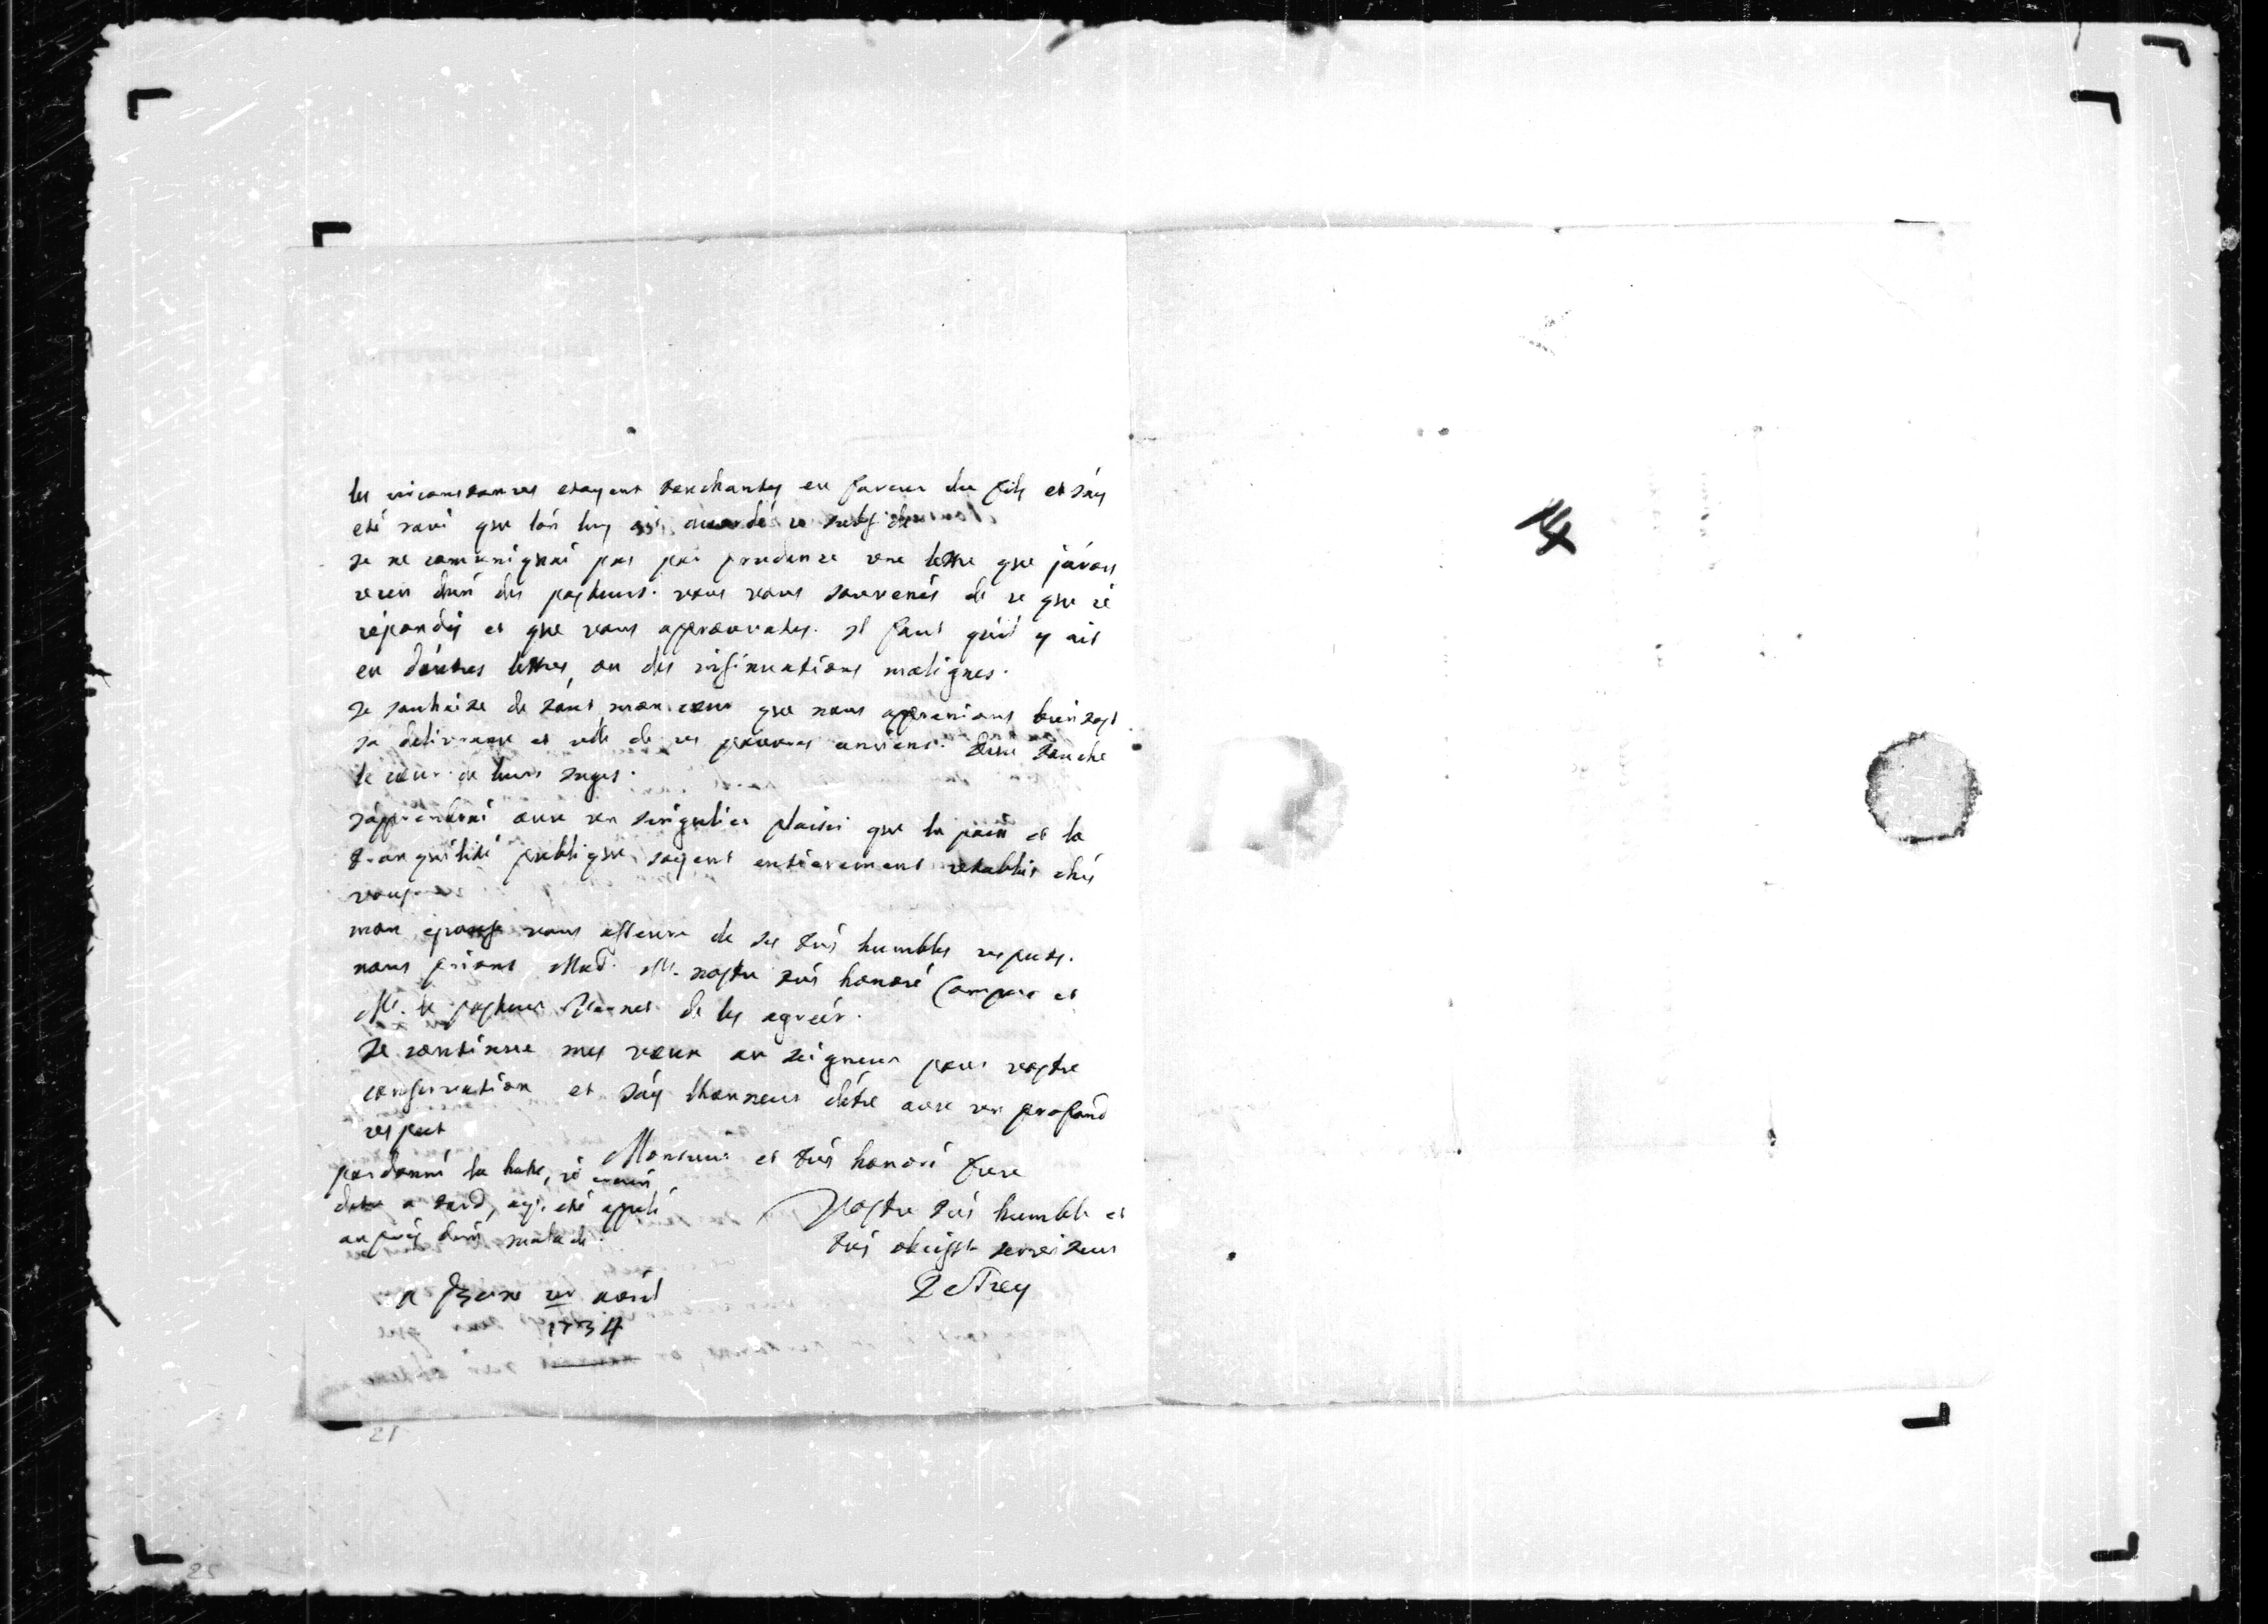 les circonstances etoyent touchantes en faveur du fils et j'ay
eté ravi que l'on luy ait accordé ce subside
Je ne comuniquai pas par prudence une lettre que j'avois
receu d'un des pasteurs. vous vous souvenés de ce que je
répondis et que vous approuvates. il faut qu'il y ait
eu d'autres lettres, ou des insinuations malignes.
Je souhaite de tout mon cœur que nous apprenions bientost
sa delivrance et celle de ces pauvres anciens. Dieu touche
le cœur de leurs juges.
J'apprendrai avec un singulier plaisir que la paix et la
tranquilité publique soyent entierement retablies chés
vous
mon epouse vous asseure de ses trés humbles respects.
nous prions Mad. M. nostre trés honoré Compere et
Mr. le pasteur de les agréer.
Je continue mes vœux au seigneur pour vostre
conservation et j'ay l'honneur d'être avec un profond
respect
Monsieur et trés honoré frere
pardonné la hate, je
a tard, ayt eté appelé
auprés d'un malade.
Vostre trés humble et
trés obeisst serviteur
DeTrey
a Berne avril
1734
14
21
25